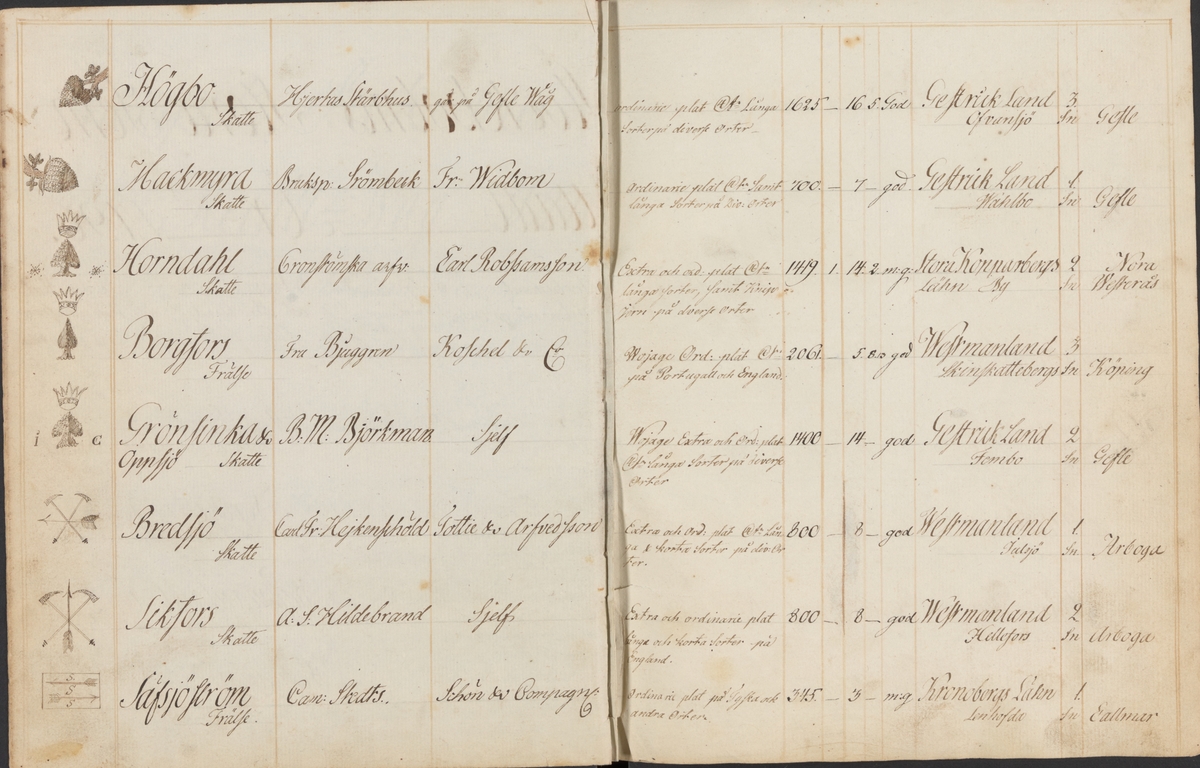 Högbo Hjertas Stärbhus går på Gefle Wåg ordinarie plat Ct Långa 1625 — 16 5 God Gestrick Land 3
Skatte Sorter på diverse Orter Ofvansjö Sn Gefle
Hackmyra Bruksp: Strömbeck Fr: Widbom Ordinarie plat Ct Samt 700 — 7 — god Gestrick Land 1
Skatte långa Sorter på div: Orter Wahlbo Sn Gefle
Horndahl Cronströmska arfv: Carl Robsahmsson Extra och ord. plat Ct 1419 1 14 2 m:g: Stora Kopparbergs 2 Nora
Skatte långa sorter, samt Knip Lähn By Sn Westerås
jern på diverse Orter
Borgfors Fru Bjuggren Koschel & C Wojage Ord: plat Ct 2061 — 5 8.0 god Westmanland 3
Frälse på Portugall och England. Skinskattebergs Sn Köping
i C Grönsinka & B. M. Björkman Sjelf Wojage Extra och Ord: plat 1400 — 14 — god Gestrick Land 2
Oppsjö Skatte Ct Långa Sorter på diverse Tombo Sn Gefle
Orter
Bredsjö Carl Fr Hejkenschöld Tottie & Arfvedsson Extra och Ord: plat Ct Lån 800 — 8 — god Westmanland 1
Skatte ga & korta Sorter på div: Or Sn Arboga
ter.
Sikfors A. S. Hildebrand Sjelf Extra och ordinarie plat 800 — 8 — god Westmanland 2
Skatte långa och korta Sorter på Hellefors Sn Arboga
England.
S S S Säfsjöström Can: Stedts. Schön & Compagni: Ordinarie plat på Tyska och 345 — 3 — m:g Kronobergs Lähn 1
Frälse. andra Orter. Lenhofda Sn Callmar